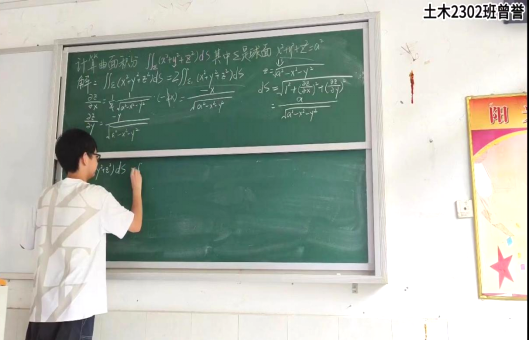 土木2302班曾誉
计算曲面积分 ∬(x²+y²+z²)dS 其中Σ是球面 x²+y²+z²=a²
解: ∬Σ(x²+y²+z²)dS = 2∬Σ(x²+y²+z²)dS
z=√a²-x²-y²
∂z/∂x = 1/2 · 1/√a²-x²-y² · (-2x) = -x/√a²-x²-y²
dS = √1+(∂z/∂x)²+(∂z/∂y)²
∂z/∂y = -y/√a²-x²-y²
= a/√a²-x²-y²
y²+z²)dS =
阳